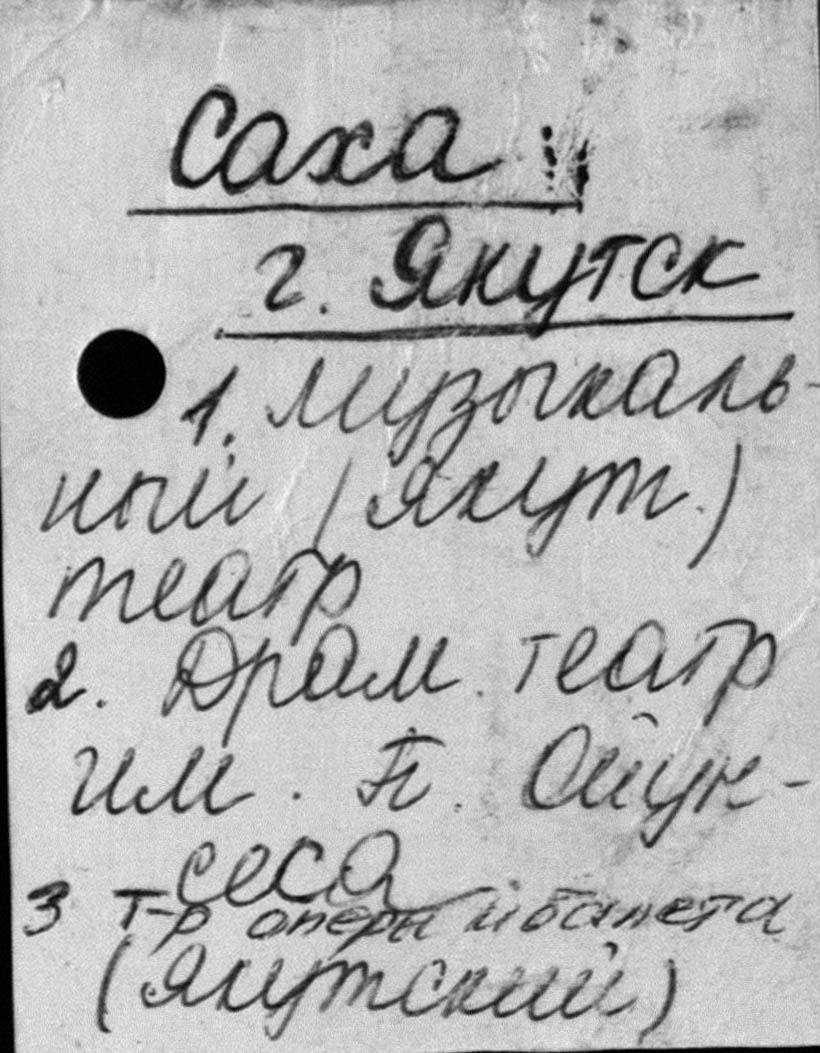 Саха
г. Якутск
1. Музыкаль-
ный (Якут.)
театр
2. Драм. театр
им. П. Ойун-
сеса
3 т-р оперы и балета
(Якутский)